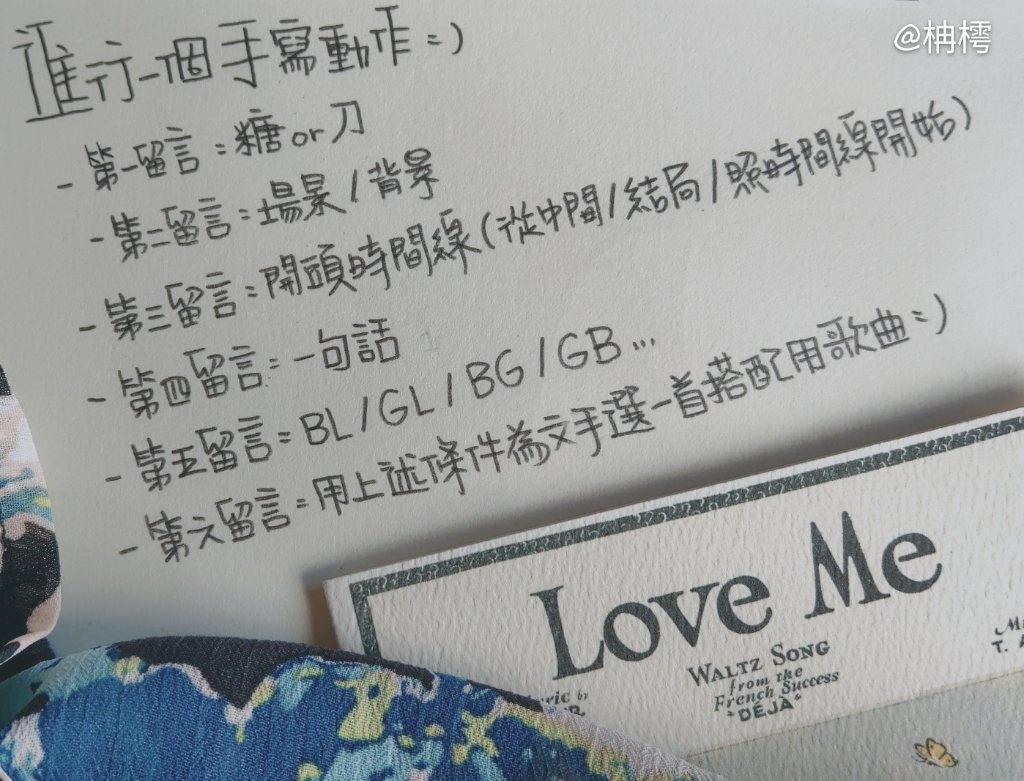 @柚樗
進行一個手寫動作=)
- 第一留言:糖or刀
- 第二留言:場景/背景
- 第三留言:開頭時間線(從中間/結局/照時間線開始)
- 第四留言:一句話
- 第五留言:BL/GL/BG/GB...
- 第六留言:用上述條件為文手選一首搭配用歌曲=)
Love Me
WALTZ SONG
from the
French Success
"DÉJÀ"